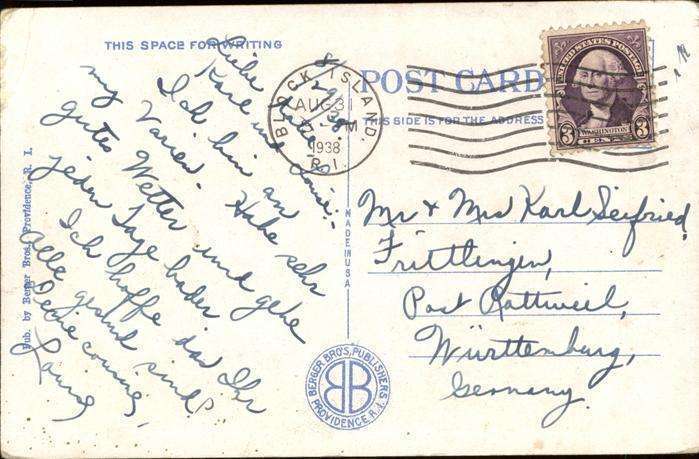 THIS SPACE FOR WRITING
8/29/38
Liebe
Karl und Luise:-
Ich bin an
my Varien. Habe sehr
gutes Wetter und gehe
jeden Tage baden
Ich hoffe das Ihr
Alle gesund sind.
Deine cousine,
Pub. by Berger Bros., Providence, R. I.
MADE IN USA
BLOCK ISLAND.
AUG 31
M
1938
R.I.
POST CARD
THIS SIDE IS FOR THE ADDRESS
UNITED STATES POSTAGE
WASHINGTON
3 CENTS 3
Mr & Mrs Karl Seifried,
Frittlingen,
Post Rottweil,
Württemburg,
Germany.
BERGER BRO'S, PUBLISHERS
BB
PROVIDENCE, R.I.